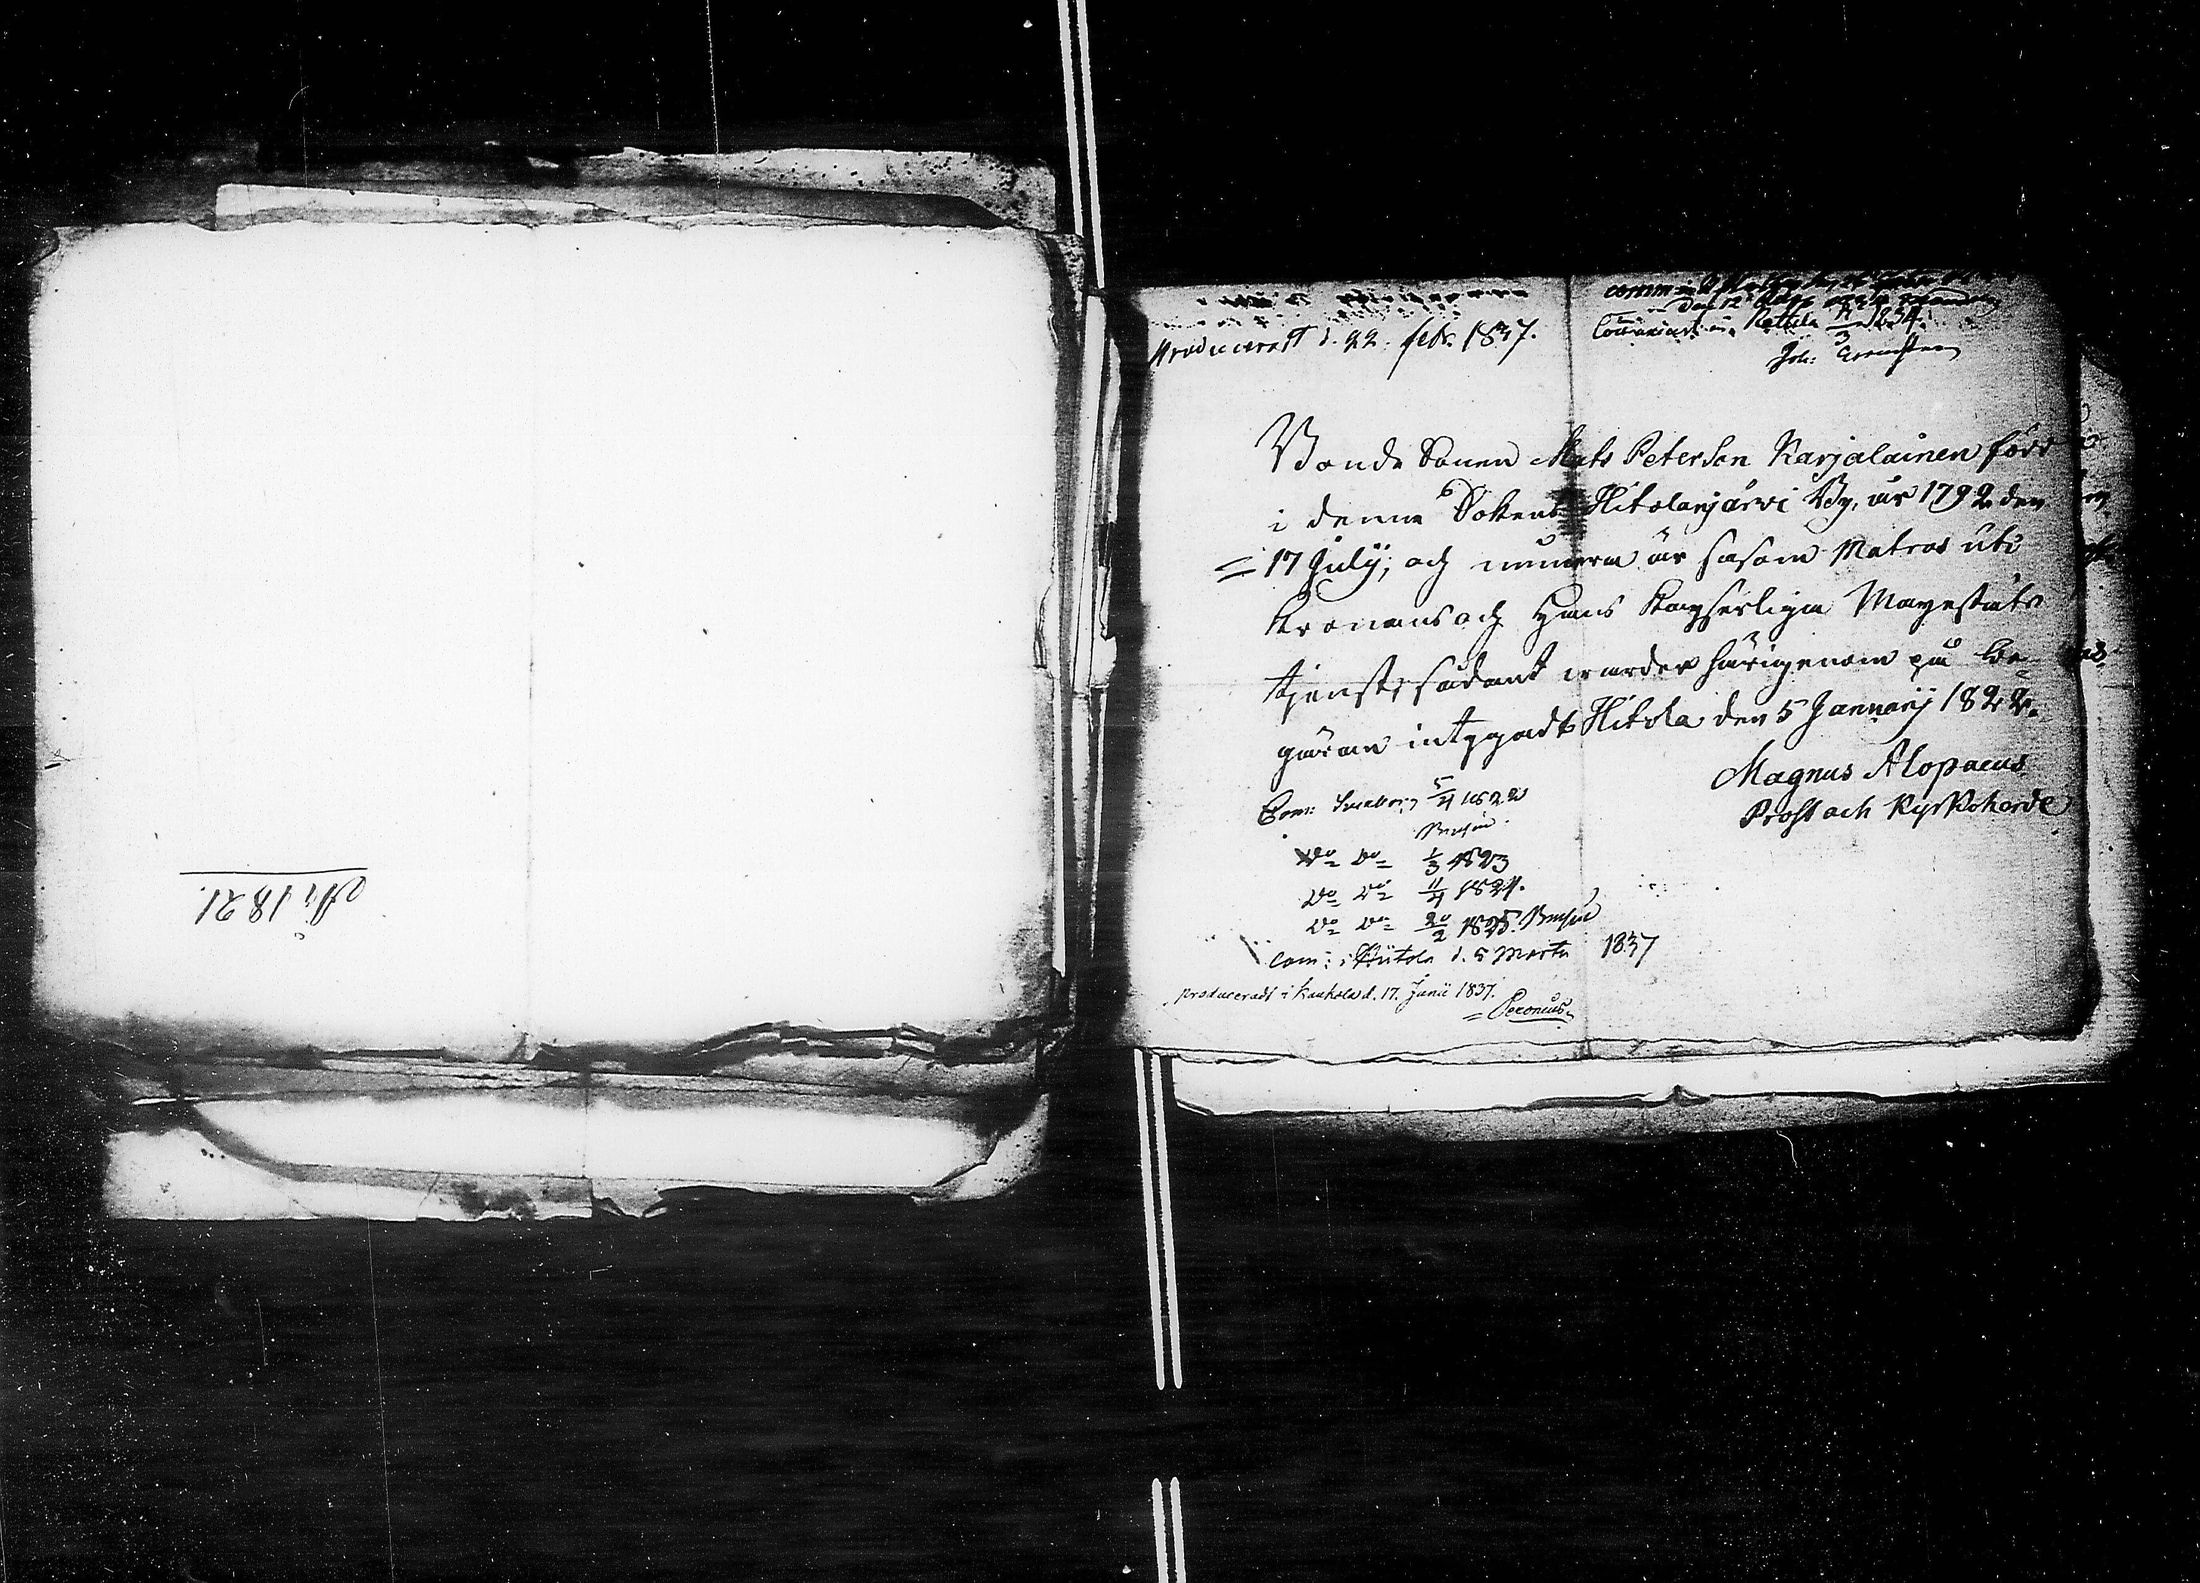 År 1821.
Produceradt d. 22. febr. 1837.
Communicerat i Kettila 1834.
Joh:
Bonde Sonen Mats Peterson Karjalainen född
i denna Sokens Hitolanjärvi By, år 1792 den
17 Julij, och numera är såsom Matros uti
Kronans och Hans Kayserliga Mayestäts
tjenst, sådant warder härigenom på be-
gäran intygadt Hitola den 5 Januarij 1822.
Magnus Alopaeus
Prost och Kyrkoherde
Com: Sveaborg 5/4 1822
Do Do 1/3 1823
Do Do 11/4 1824.
Do Do 20/2 1825.
Com: i Hiitola d. 5 Martii 1837
produceradt i Kaukola d. 17. Junii 1837.